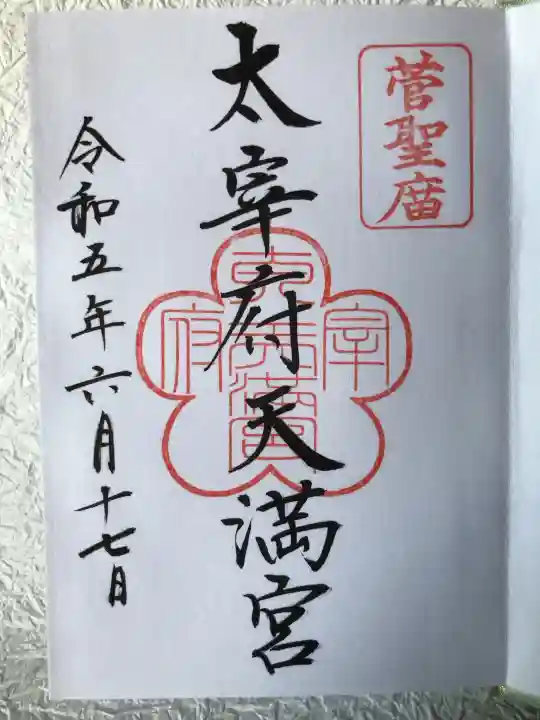 菅聖廟
太宰府天満宮
令和五年六月十七日